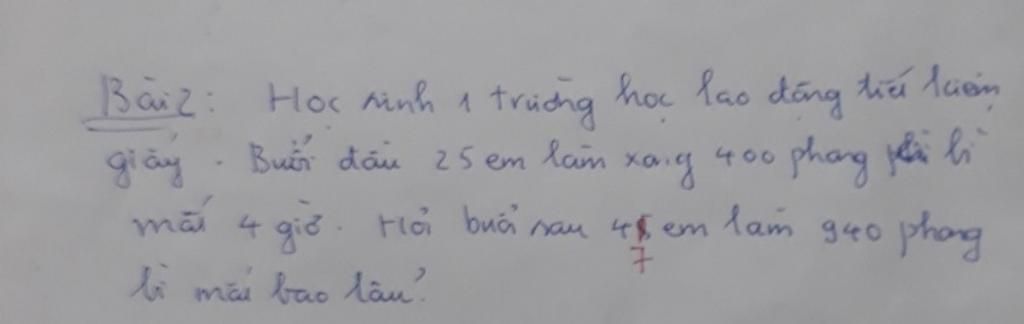 Bài 2: Học sinh 1 trường học lao động tiết kiệm
giấy. Buổi đầu 25 em làm xong 400 phong bì
mất 4 giờ. Hỏi buổi sau 45 em làm 940 phong
7
bì mất bao lâu?